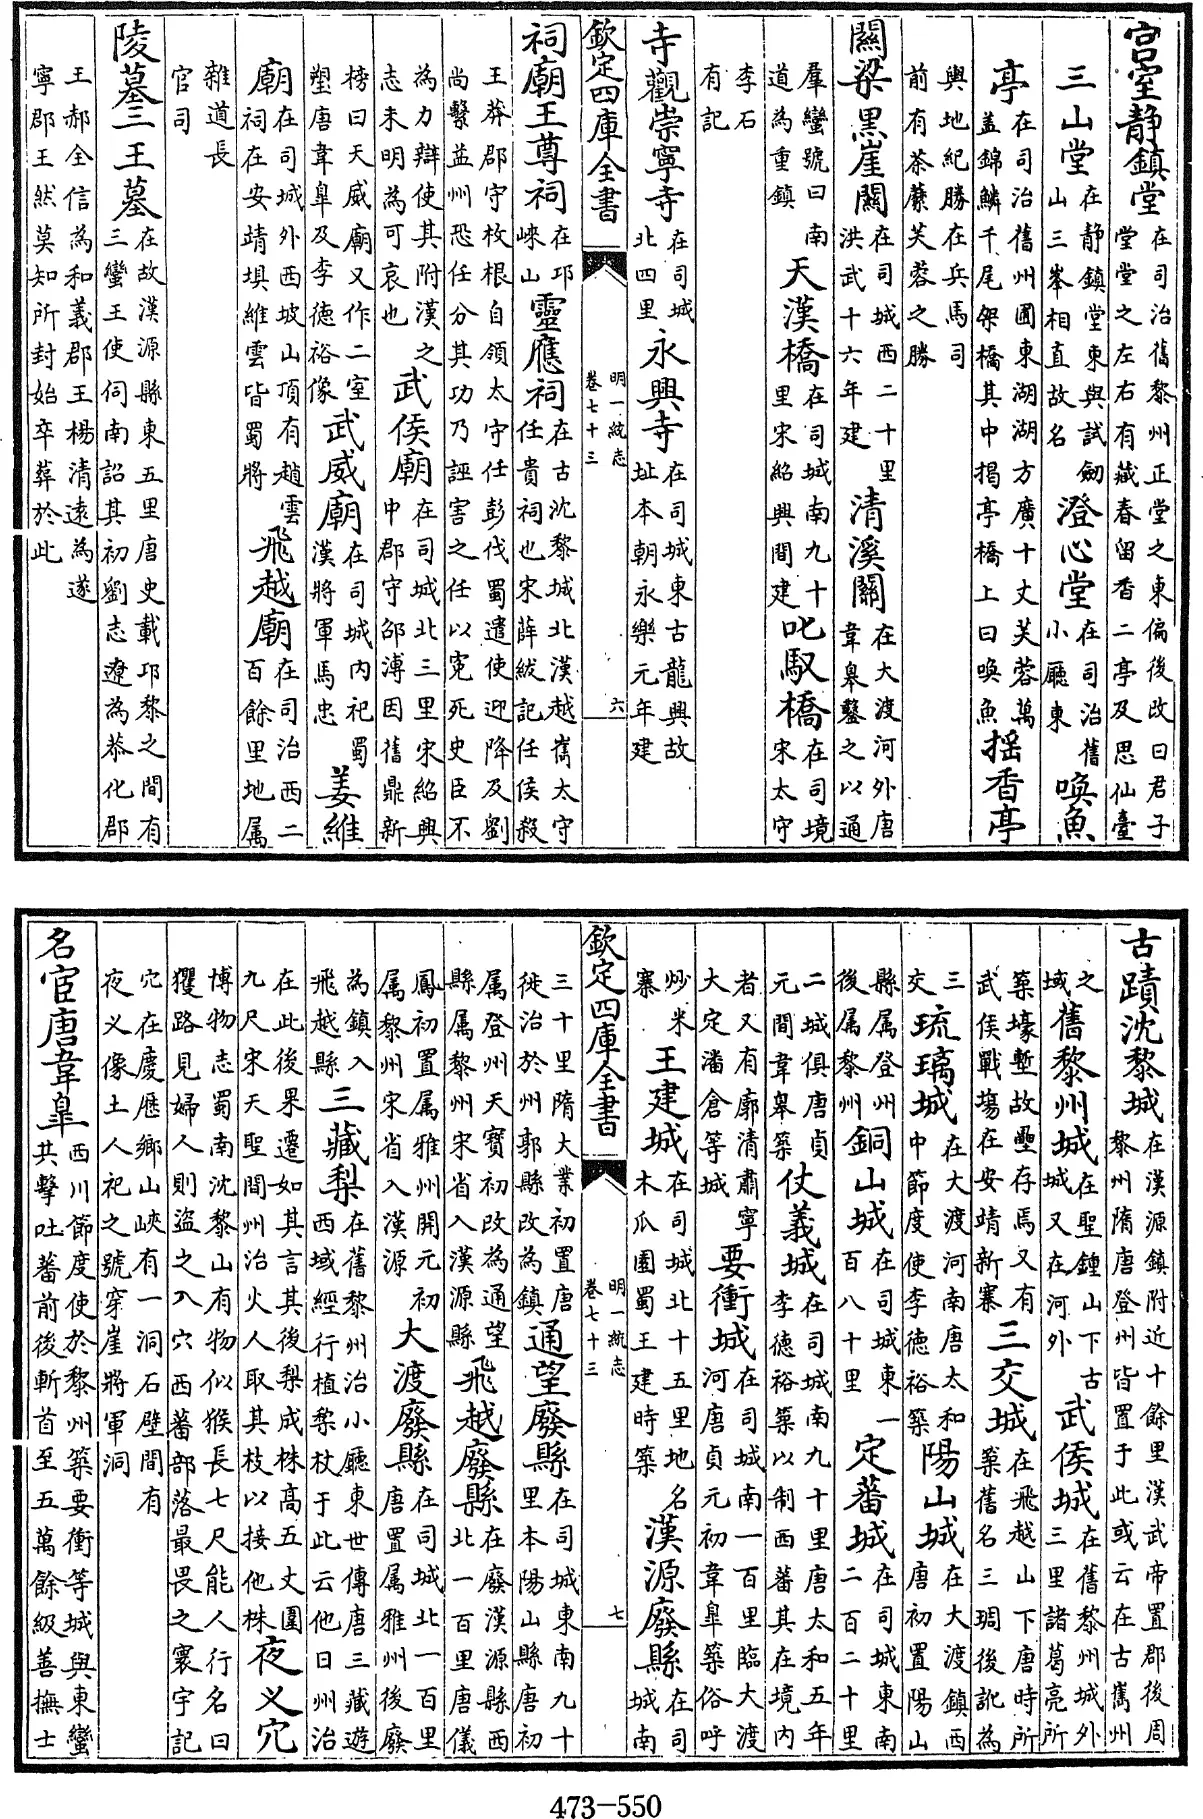 宫室靜鎮堂在司治舊黎州正堂之東偏後改曰君子堂堂之左右有藏春留香二亭及思仙臺
三山堂在靜鎮堂東與試劒山三峯相直故名澄心堂在司治舊小廳東喚魚
亭在司治舊州圃東湖湖方廣十丈芙蓉萬蓋錦鱗千尾架橋其中揭亭橋上曰喚魚揺香亭
輿地紀勝在兵馬司前有荼蘼芙蓉之勝
關梁黑崖關在司城西二十里洪武十六年建清溪關在大渡河外唐韋臯鑿之以通
羣蠻號曰南道為重鎮天漢橋在司城南九十里宋紹興間建叱馭橋在司境宋太守
李石有記
寺觀崇寧寺在司城北四里永興寺在司城東古龍興故址本朝永樂元年建
欽定四庫全書
明一統志
卷七十三
六
祠廟王尊祠在邛崍山靈應祠在古沈黎城北漢越嶲太守任貴祠也宋薛紱記任侯殺
王莽郡守枚根自領太守任彭伐蜀遣使迎降及劉尚繫益州恐任分其功乃誣害之任以寃死史臣不
為力辯使其附漢之志未明為可哀也武侯廟在司城北三里宋紹興中郡守邵溥因舊鼎新
榜曰天威廟又作二室塑唐韋臯及李德裕像武威廟在司城内祀蜀漢將軍馬忠姜維
廟在司城外西坡山頂有趙雲祠在安靖埧維雲皆蜀將飛越廟在司治西二百餘里地属
雜道長官司
陵墓三王墓在故漢源縣東五里唐史載邛黎之間有三蠻王使伺南詔其初劉志遼為恭化郡
王郝全信為和義郡王楊清遠為遂寧郡王然莫知所封始卒葬於此
古蹟沈黎城在漢源鎮附近十餘里漢武帝置郡後周黎州隋唐登州皆置于此或云在古嶲州
之域舊黎州城在聖鍾山下古城又在河外武侯城在舊黎州城外三里諸葛亮所
築壕塹故壘存焉又有武侯戰塲在安靖新寨三交城在飛越山下唐時所築舊名三琱後訛為
三交琉璃城在大渡河南唐太和中節度使李德裕築陽山城在大渡鎮西唐初置陽山
縣属登州後属黎州銅山城在司城東一百八十里定蕃城在司城東南二百二十里
二城俱唐貞元間韋臯築仗義城在司城南九十里唐太和五年李德裕築以制西蕃其在境内
者又有廓清肅寧大定潘倉等城要衝城在司城南一百里臨大渡河唐貞元初韋臯築俗呼
炒米寨王建城在司城北十五里地名木瓜園蜀王建時築漢源廢縣在司城南
欽定四庫全書
明一統志
卷七十三
七
三十里隋大業初置唐徙治於州郭縣改為鎮通望廢縣在司城東南九十里本陽山縣唐初
属登州天寶初改為通望縣属黎州宋省入漢源縣飛越廢縣在廢漢源縣西北一百里唐儀
鳳初置属雅州開元初属黎州宋省入漢源大渡廢縣在司城北一百里唐置属雅州後廢
為鎮入飛越縣三藏梨在舊黎州治小廳東世傳唐三藏遊西域經行植棃杖于此云他日州治
在此後果遷如其言其後梨成株高五丈圍九尺宋天聖間州治火人取其枝以接他株夜义穴
博物志蜀南沈黎山有物似猴長七尺能人行名曰玃路見婦人則盜之入穴西蕃部落最畏之寰宇記
穴在慶厯鄉山峽有一洞石壁間有夜义像土人祀之號穿崖將軍洞
名宦唐韋臯西川節度使於黎州築要衝等城與東蠻共擊吐蕃前後斬首至五萬餘級善撫士
473-550